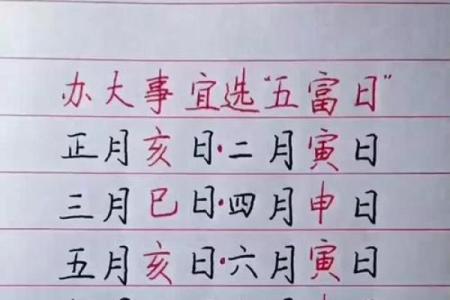 办大事宜选"五富日"
正月亥日·二月寅日
三月巳日·四月申日
五月亥日·六月寅日